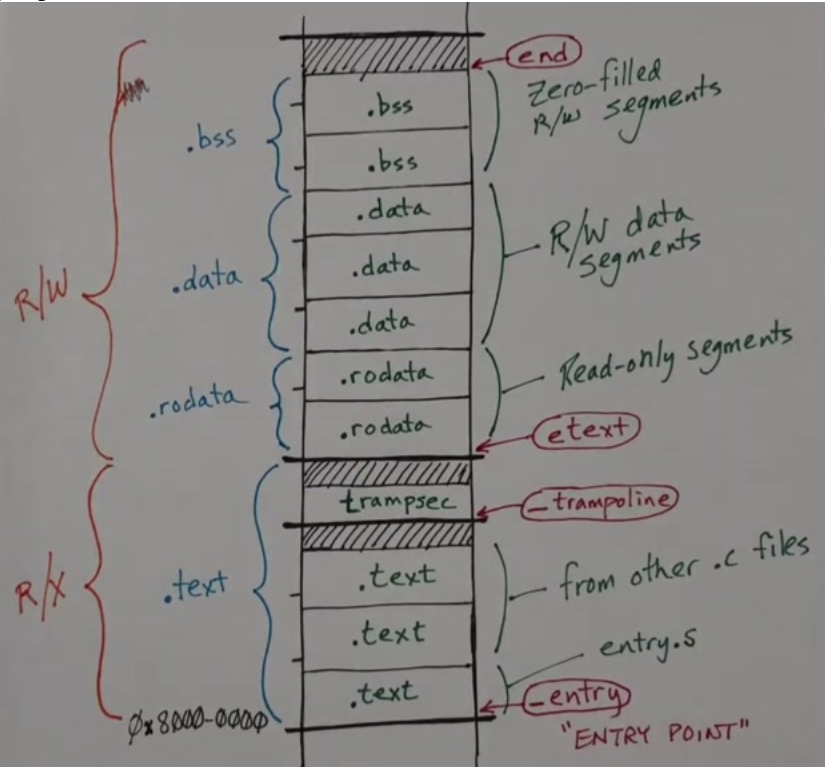 end
Zero-filled
R/W segments
.bss
.bss
.bss
.data
R/W data
segments
R/W
.data
.data
.data
Read-only segments
.rodata
.rodata
.rodata
etext
trampsec
_trampoline
from other .c files
R/X
.text
.text
.text
entry.s
.text
_entry
0x8000-0000
"ENTRY POINT"